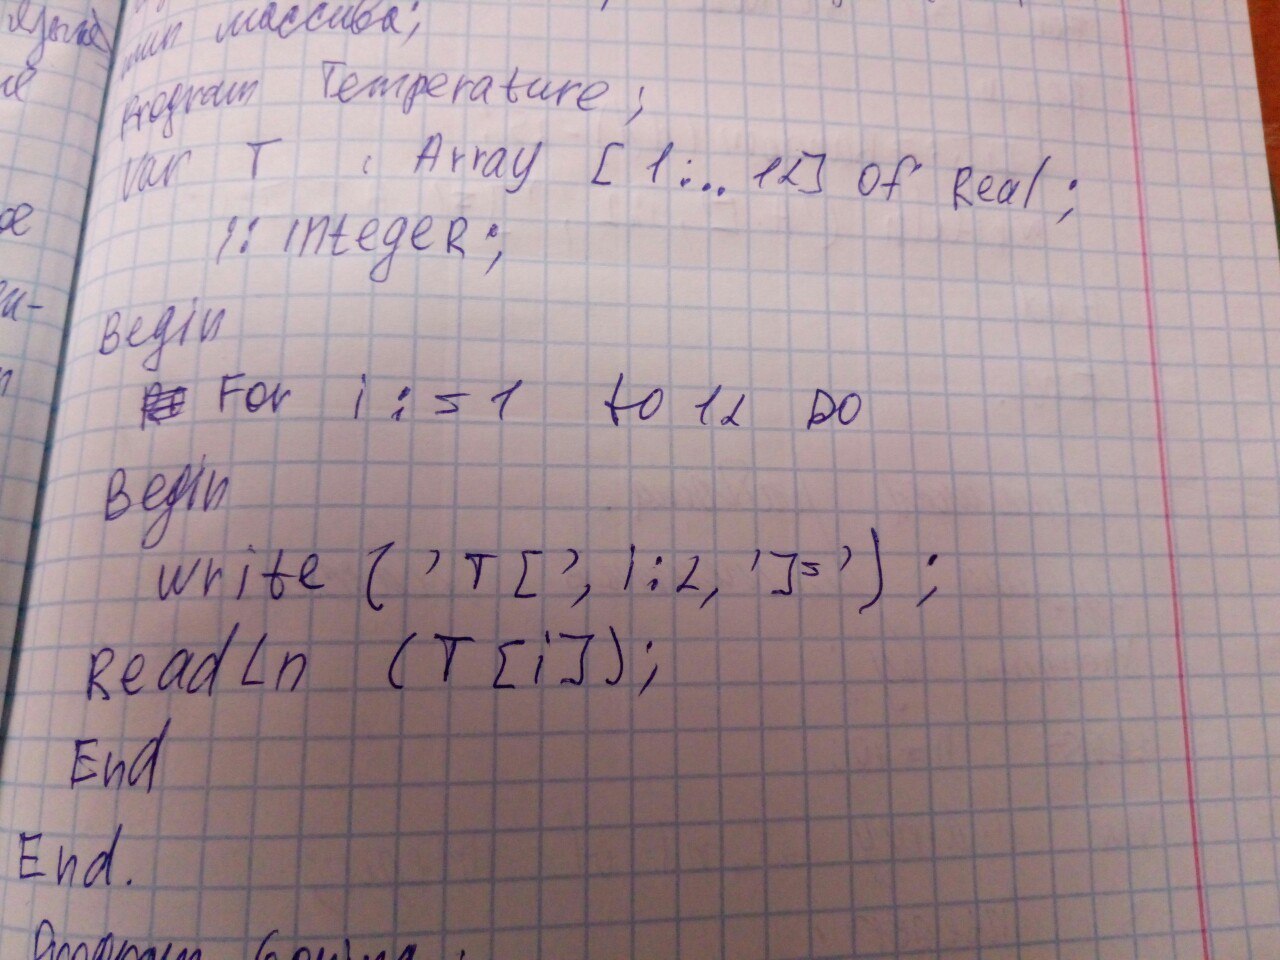 тип массива;
Program Temperature;
Var T : Array [1:..12] Of Real;
i: integeR;
Begin
For i:=1 to 12 DO
Begin
write ('T[', i:2, ']=');
ReadLn (T[i]);
End
End.
Program